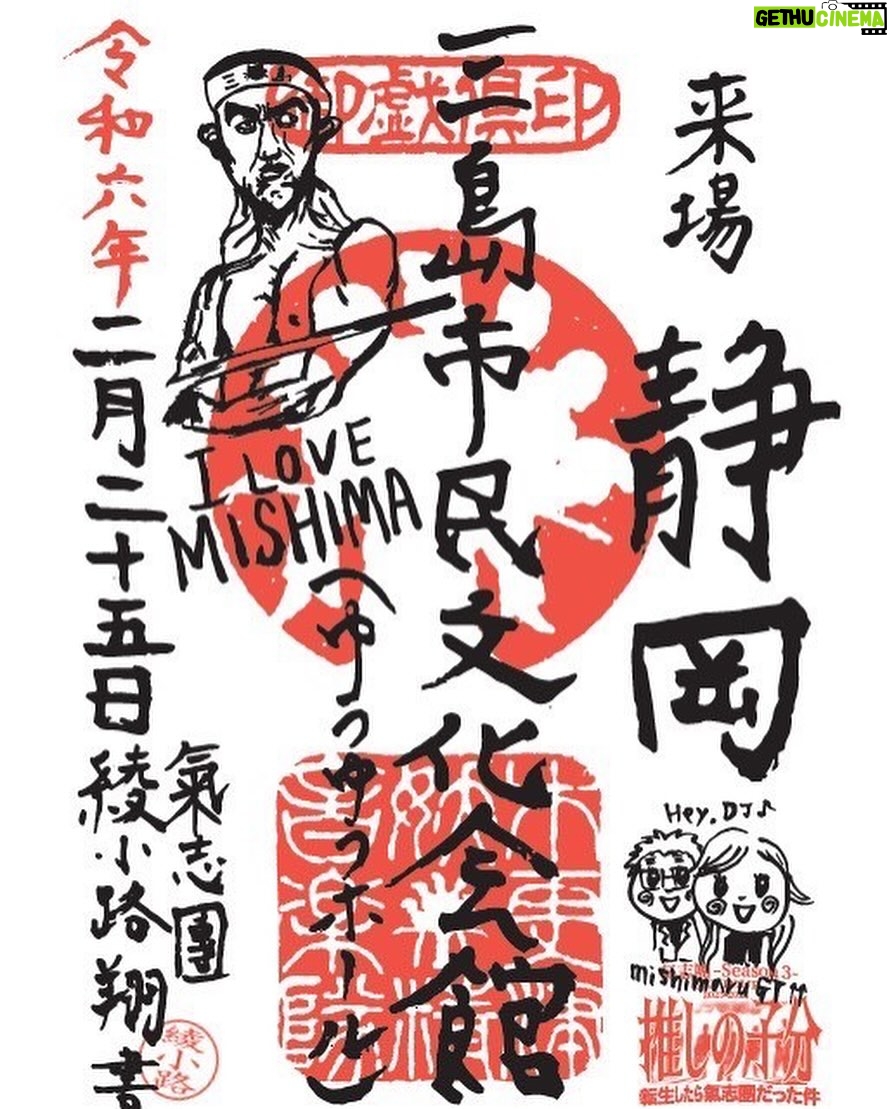 GETHU CINEMA
来場
静岡
三島市民文化会館
(ゆうゆうホール)
令和六年二月二十五日
氣志團
綾小路翔書
綾小路
三島
御戯倶印
I LOVE
MISHIMA
Hey, DJ♪
mishimaru GT
-Season 3-
推しの子分
転生したら氣志團だった件